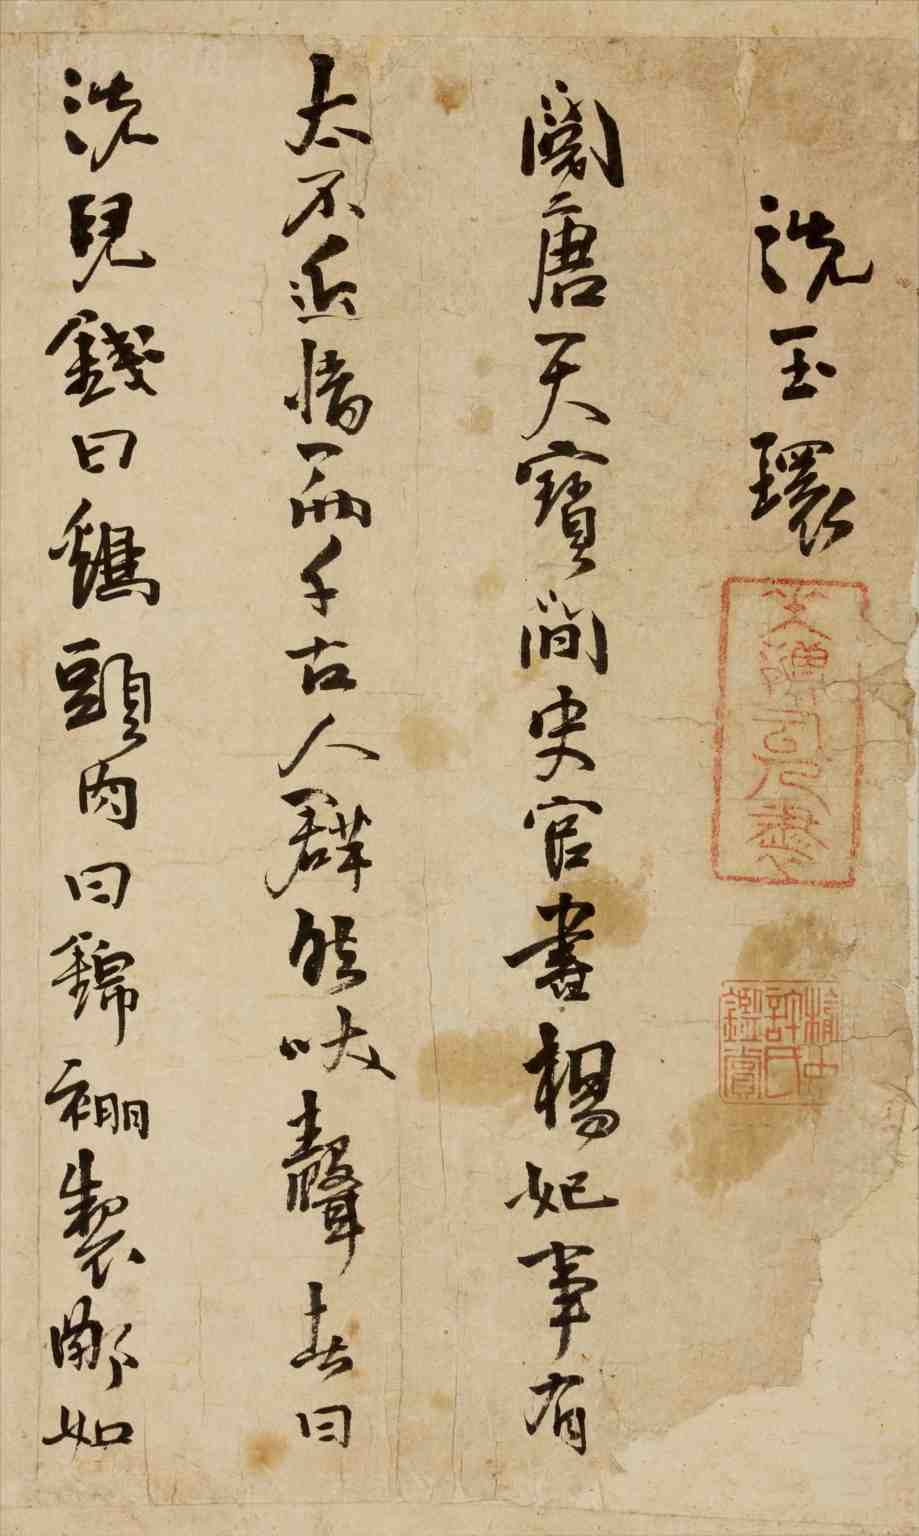 洗玉環
閱唐天寶間史官書楊妃事有
太不近情而千古人群然吠聲者曰
洗兒錢曰雞頭肉曰錦繃製如
許氏
鑑賞